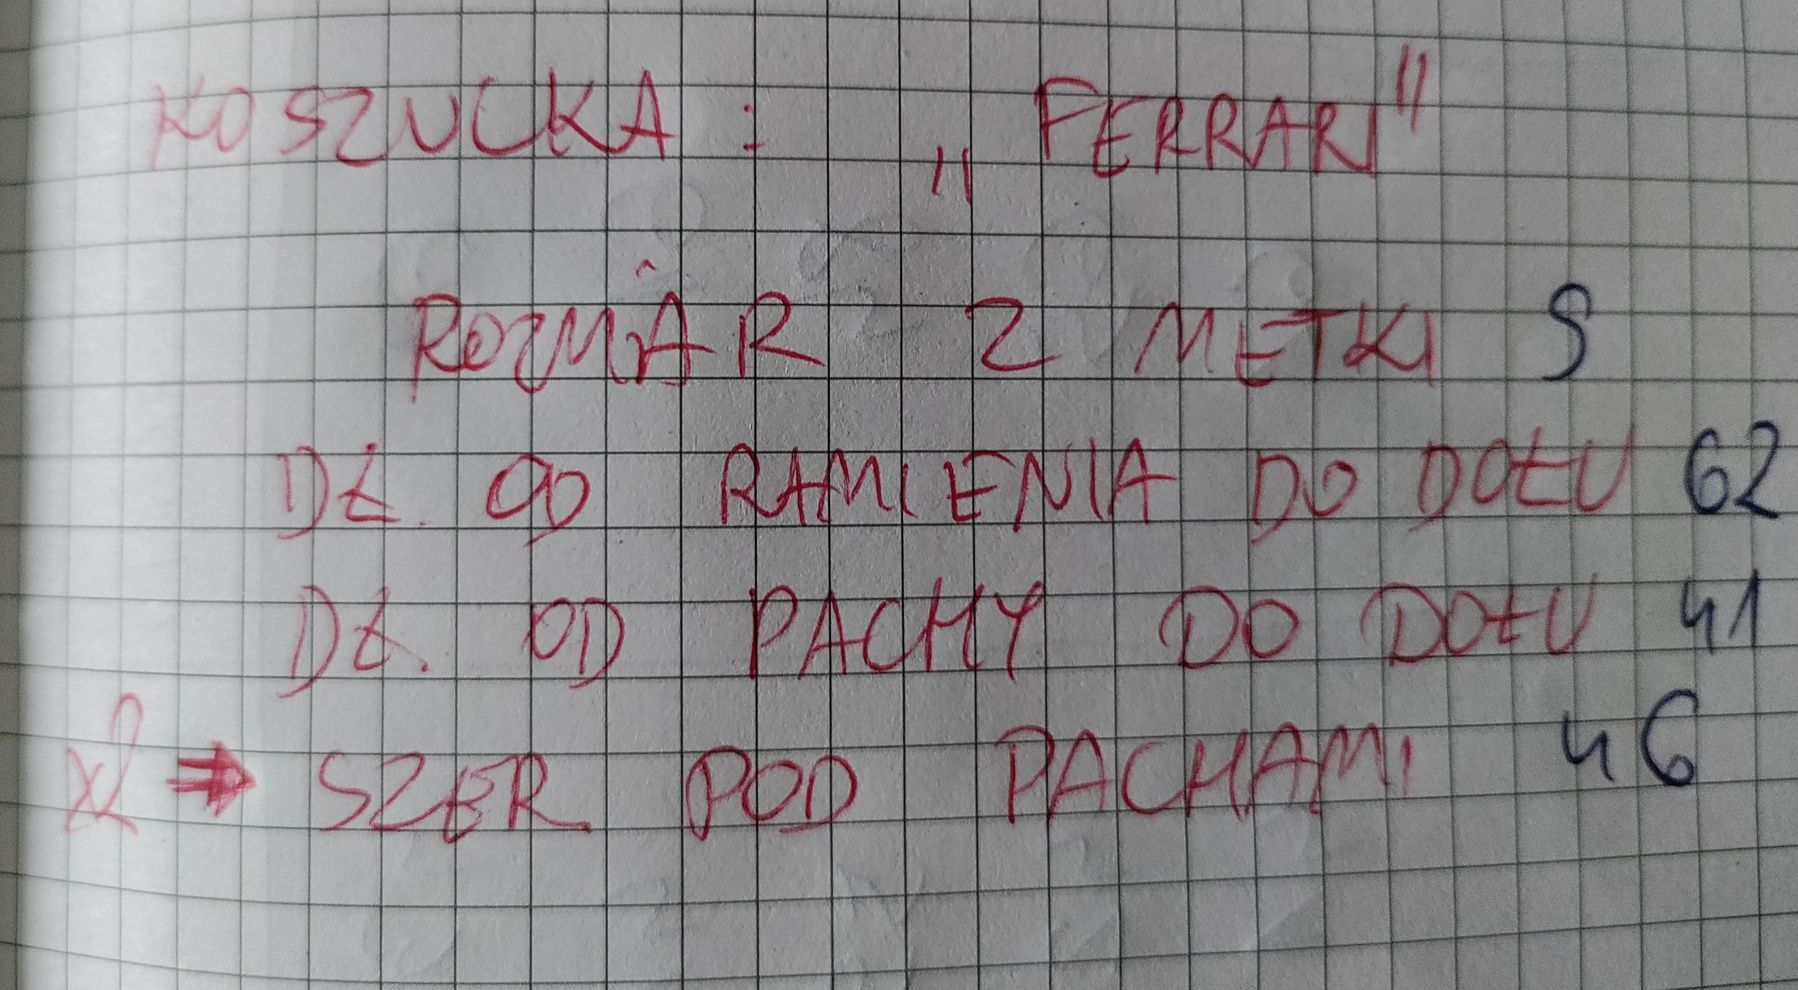 KOSZULKA : „FERRARI"
ROZMIAR Z METKI S
DŁ. OD RAMIENIA DO DOŁU 62
DŁ. OD PACHY DO DOŁU 41
x2 ⇒ SZER POD PACHAMI 46